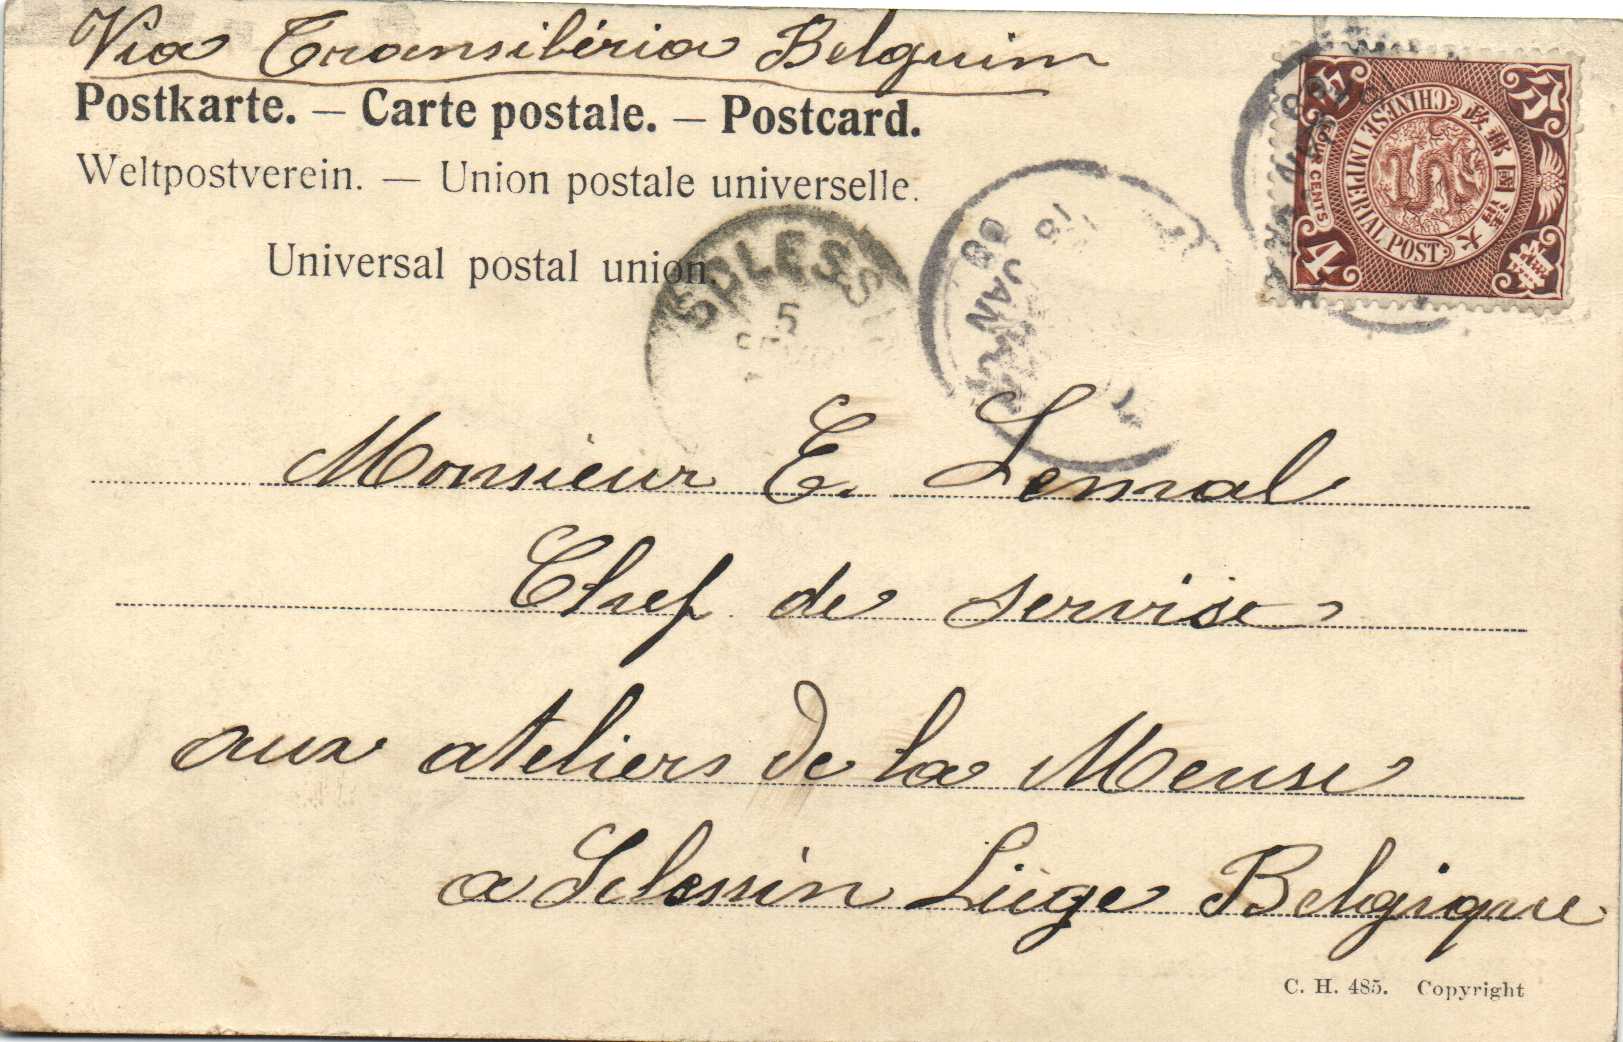 Via Transibéria Belguim
Postkarte. — Carte postale. — Postcard.
Weltpostverein. — Union postale universelle.
Universal postal union.
CHINESE IMPERIAL POST
大清國郵政
4 CENTS
SCLESSIN
5
18
JAN
08
Monsieur E. Lemal
Chef de servise
aux ateliers de la Meuse
a Sclessin Liége Belgique
C. H. 485. Copyright